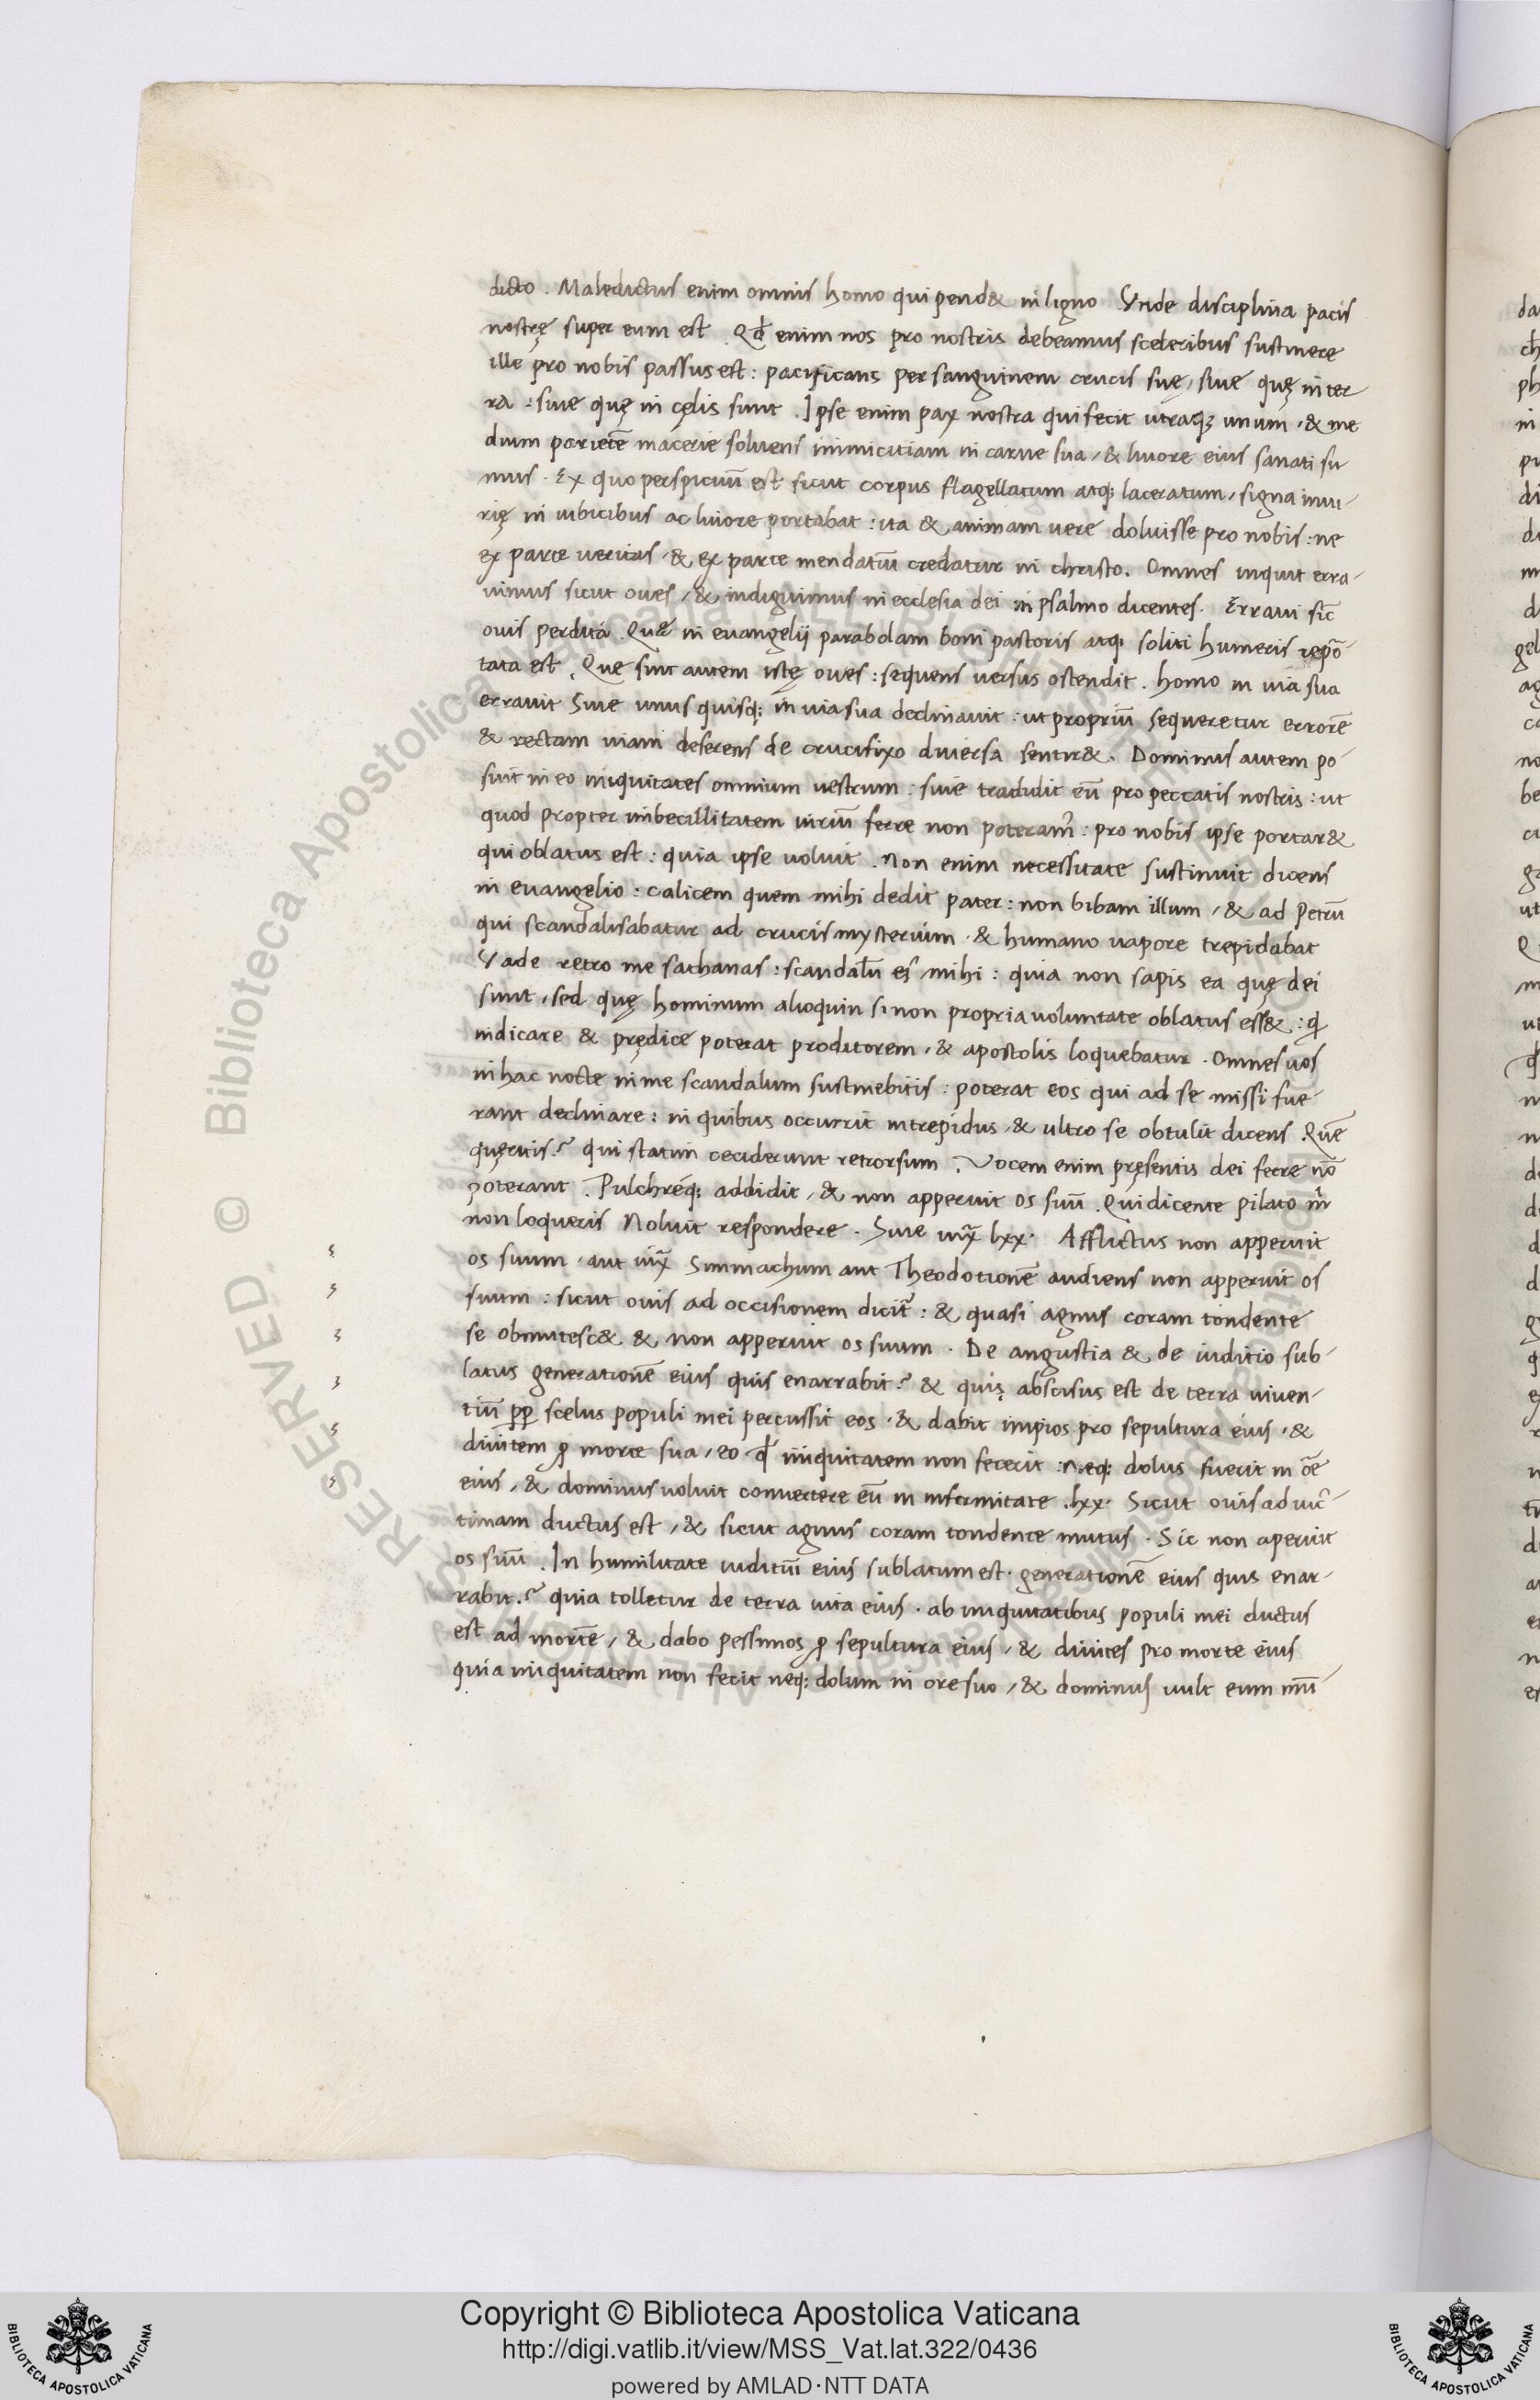 dicto . Maledictus enim omnis homo qui pend& in ligno Vnde disciplina pacis
nostrę super eum est . Qđ enim nos pro nostris debeamus sceleribus sustinere
ille pro nobis passus est : pacificans per sanguinem crucis suę / siue quę in ter
ra : siue quę in cęlis sunt . Ipse enim pax nostra qui fecit utraq; unum , & me
dium parietē macerie soluens inimicitiam in carne sua , & liuore eius sanati su
mus . Ex quo perspicuū est sicut corpus flagellatum atq; laceratum / signa iniu-
rię in uibicibus ac liuore portabat : ita & animam uere doluisse pro nobis : ne
ex parte ueritas , & ex parte mendatiū credatur in christo . Omnes inquit erra-
uimus sicut oues , & indiguimus in ecclesia dei in psalmo dicentes . Erraui sic̄
ouis perdita . Quæ in euangelij parabolam boni pastoris atq; soliti humeris repō
tata est . Que sint autem istę oues : sequens uersus ostendit . homo in uia sua
errauit Siue unus quisq; in uia sua declinauit : ut propriū sequeretur errorē
& rectam uiam deserens de crucifixo diuersa sentir& . Dominus autem po-
suit in eo iniquitates omnium uestrum : siue tradidit eū pro peccatis nostris : ut
quod propter imbecillitatem uiriū ferre non poteram̄ : pro nobis ipse portar&
qui oblatus est : quia ipse uoluit . Non enim necessitate sustinuit dicens
in euangelio : calicem quem mihi dedit pater : non bibam illum , & ad Petrū
qui scandalisabatur ad crucis mysterium . & humano uapore trepidabat
Vade retro me sathanas : scandalū es mihi : quia non sapis ea quę dei
sunt , sed quę hominum alioquin si non propria uoluntate oblatus ess& : qđ
indicare & prędice poterat proditorem , & apostolis loquebatur . Omnes uos
in hac nocte in me scandalum sustinebitis : poterat eos qui ad se missi fue-
rant declinare : in quibus occurrit intrepidus , & ultro se obtulit dicens . Quē
quęritis ? qui statim ceciderunt retrorsum . Vocem enim pręsentis dei ferre nō
poterant . Pulchréq; addidit , & non apperuit os suū . Qui dicente pilato m̄
non loqueris Noluit respondere . Siue iux̄ lxx . Afflictus non apperuit
os suum . aut iux̄ Simmachum aut Theodotionē audiens non apperuit os
suum : sicut ouis ad occisionem dicit̄ : & quasi agnus coram tondente
se obmutesc& & non apperuit os suum . De angustia & de iuditio sub-
latus generationē eius quis enarrabit ? & quis abscisus est de terra uiuen-
tiū ꝓp scelus populi mei percussit eos . & dabit impios pro sepultura eius , &
diuitem ꝓ morte sua , eo qđ iniquitatem non fecerit : neq; dolus fuerit in o͞e
eius , & dominus uoluit conuertere eū in infirmitate . lxx . Sicut ouis ad uic-
timam ductus est , & sicut agnus coram tondente mutus . Sic non aperuit
os suū . In humilitate iuditiū eius sublatum est . generationē eius quis enar-
rabit ? quia tolletur de terra uita eius . ab iniquitatibus populi mei ductus
est ad mortē , & dabo pessimos ꝓ sepultura eius , & diuites pro morte eius
quia iniquitatem non fecit neq; dolum in ore suo , & dominus uult eum mū-
RESERVED. © Biblioteca Apostolica Vaticana
Copyright © Biblioteca Apostolica Vaticana
http://digi.vatlib.it/view/MSS_Vat.lat.322/0436
powered by AMLAD·NTT DATA
BIBLIOTECA APOSTOLICA VATICANA
BIBLIOTECA APOSTOLICA VATICANA